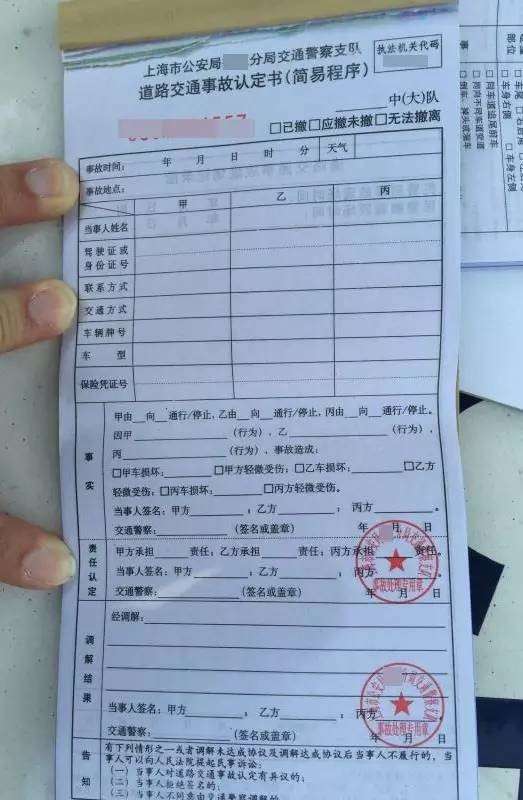 上海市公安局 分局交通警察支队
执法机关代码
道路交通事故认定书(简易程序)
中(大)队
□已撤□应撤未撤□无法撤离
事故时间: 年 月 日 时 分 天气
事故地点:
甲 乙 丙
当事人姓名
驾驶证或
身份证号
联系方式
交通方式
车辆牌号
车 型
保险凭证号
事实
甲由__向__通行/停止,乙由__向__通行/停止,丙由__向__通行/停止。
因甲________(行为)、乙________(行为)、
丙________(行为),事故造成:
□甲车损坏:______□甲方轻微受伤;□乙车损坏:______□乙方
轻微受伤;□丙车损坏:______□丙方轻微受伤。
当事人签名:甲方______,乙方______,丙方______。
交通警察:______(签名或盖章) 年 月 日
责任认定
甲方承担____责任;乙方承担____责任;丙方承担____责任。
当事人签名:甲方______,乙方______,丙方
交通警察:______(签名或盖章) 年 月 日
事故处理专用章
调解结果
经调解:
当事人签名:甲方______,乙方______,丙方
交通警察:______(签名或盖章) 年 月 日
事故处理专用章
告知
有下列情形之一或者调解未达成协议及调解达成协议后当事人不履行的,当
事人可以向人民法院提起民事诉讼:
(一)当事人对道路交通事故认定有异议的;
(二)当事人拒绝签名的;
(三)当事人不同意由交通警察调解的。
部位
□车身右侧
□车身左侧
□同车道追尾前车